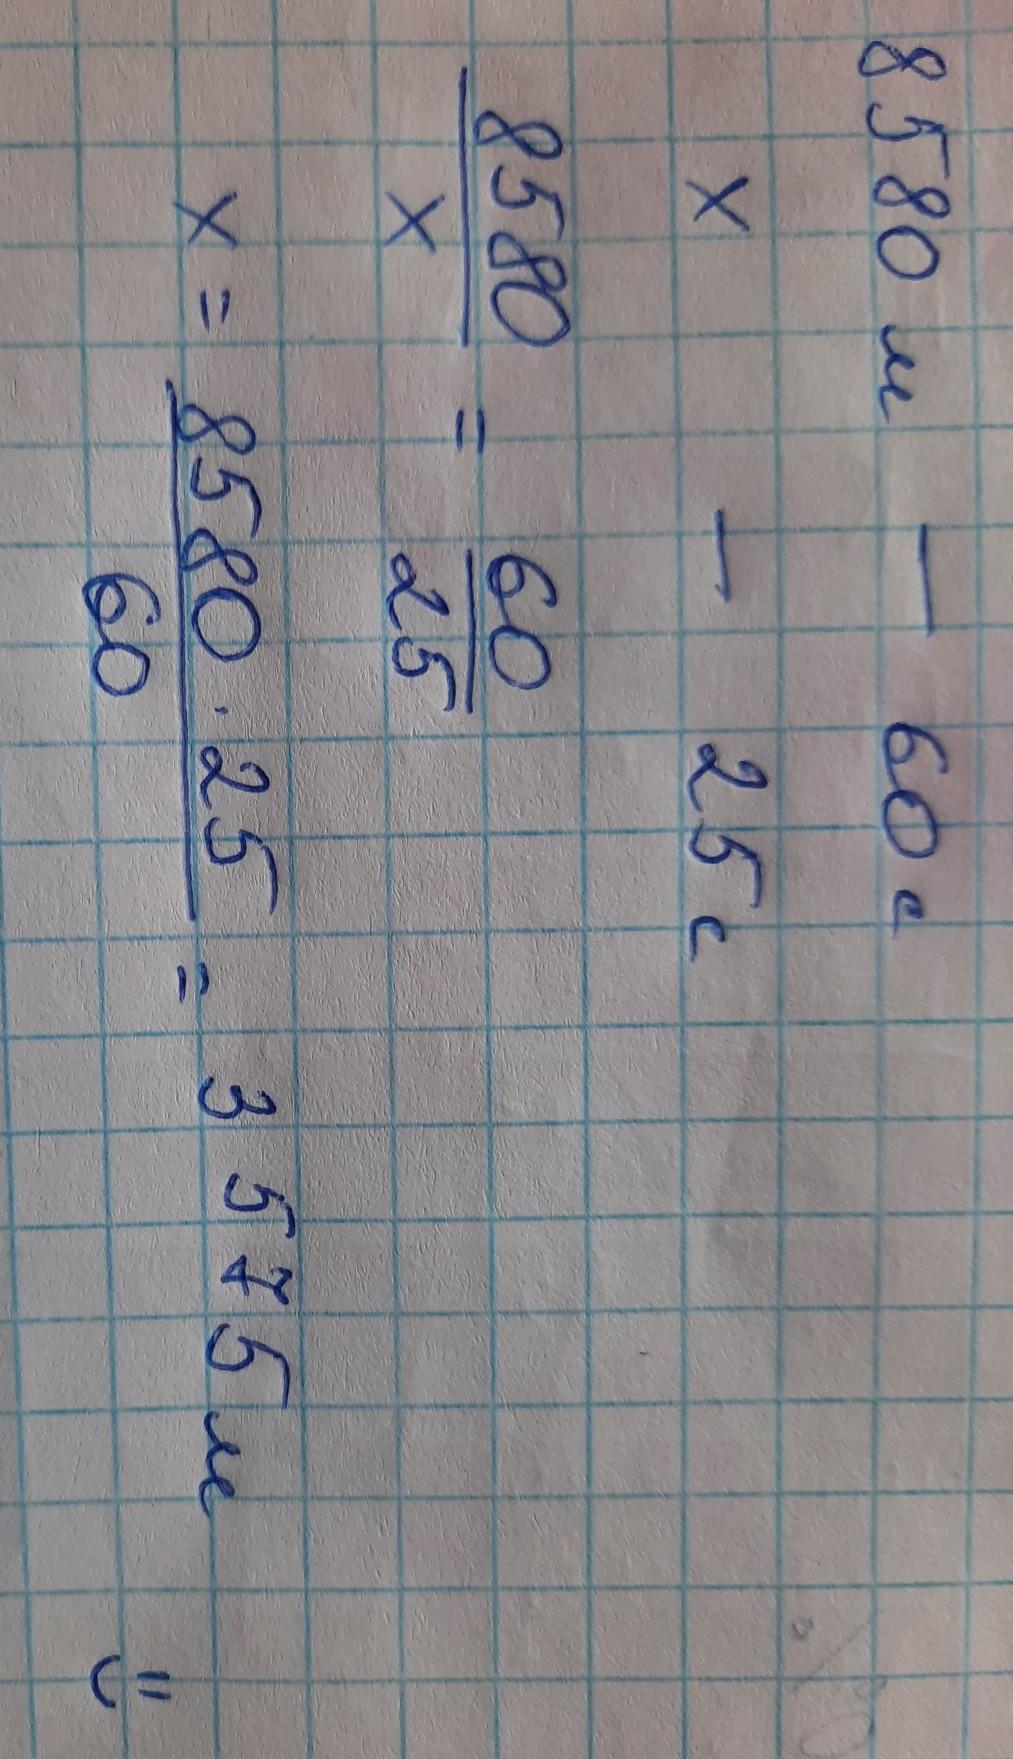 8580 м — 60 с
x — 25 с
8580 / x = 60 / 25
x = 8580 · 25 / 60 = 3575 м